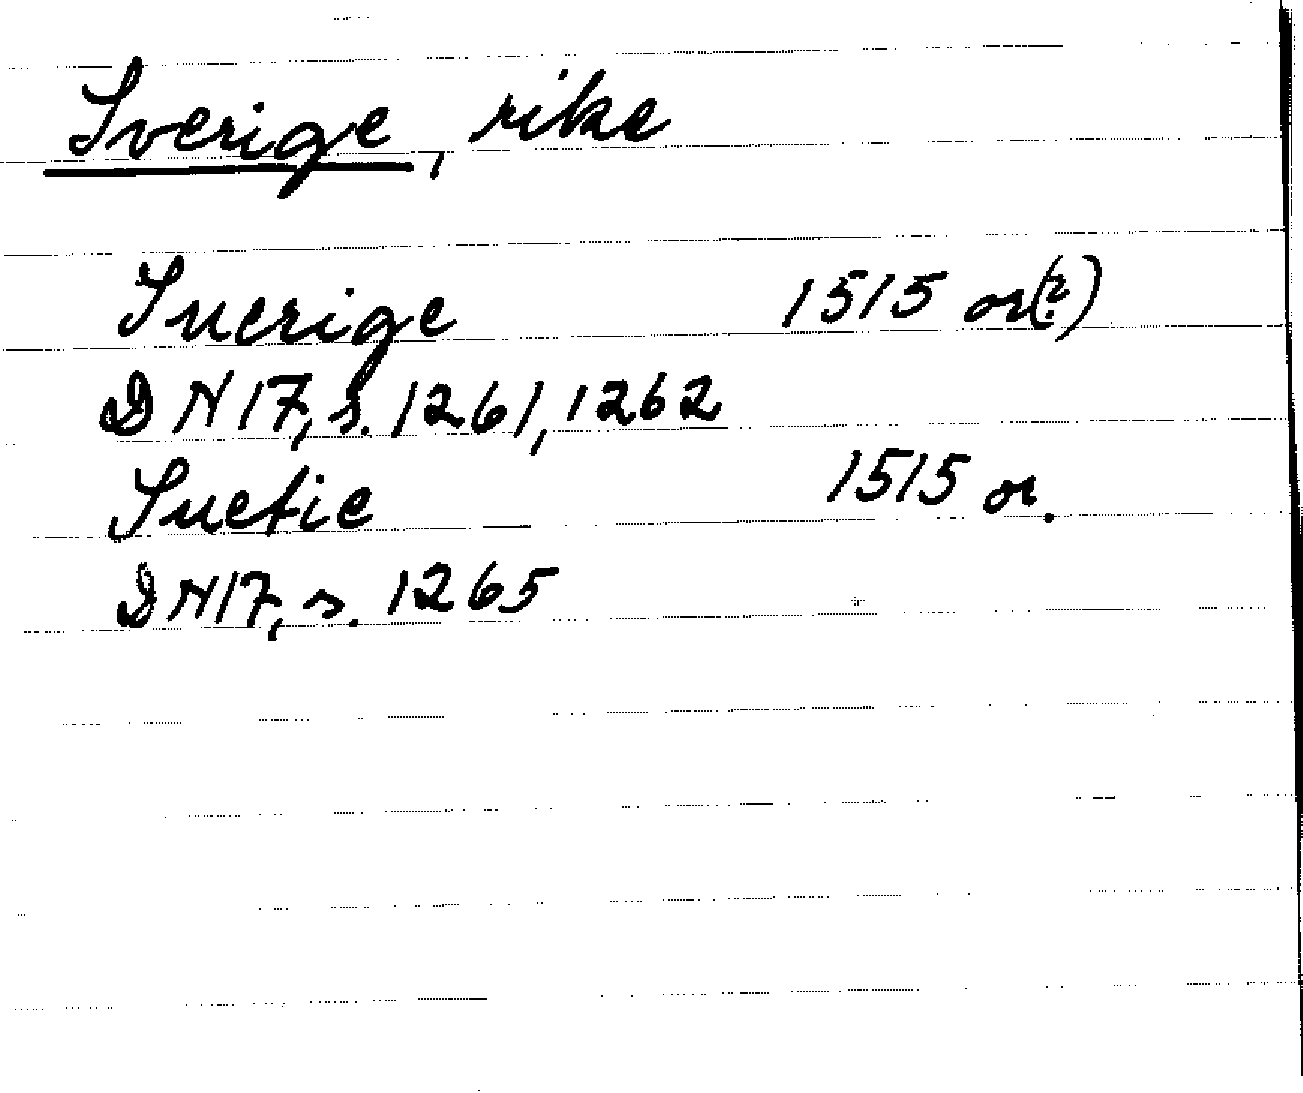 Sverige, rike
Suerige 1515 or(?)
DN17, s. 1261, 1262
Suetie 1515 or.
DN17, s. 1265